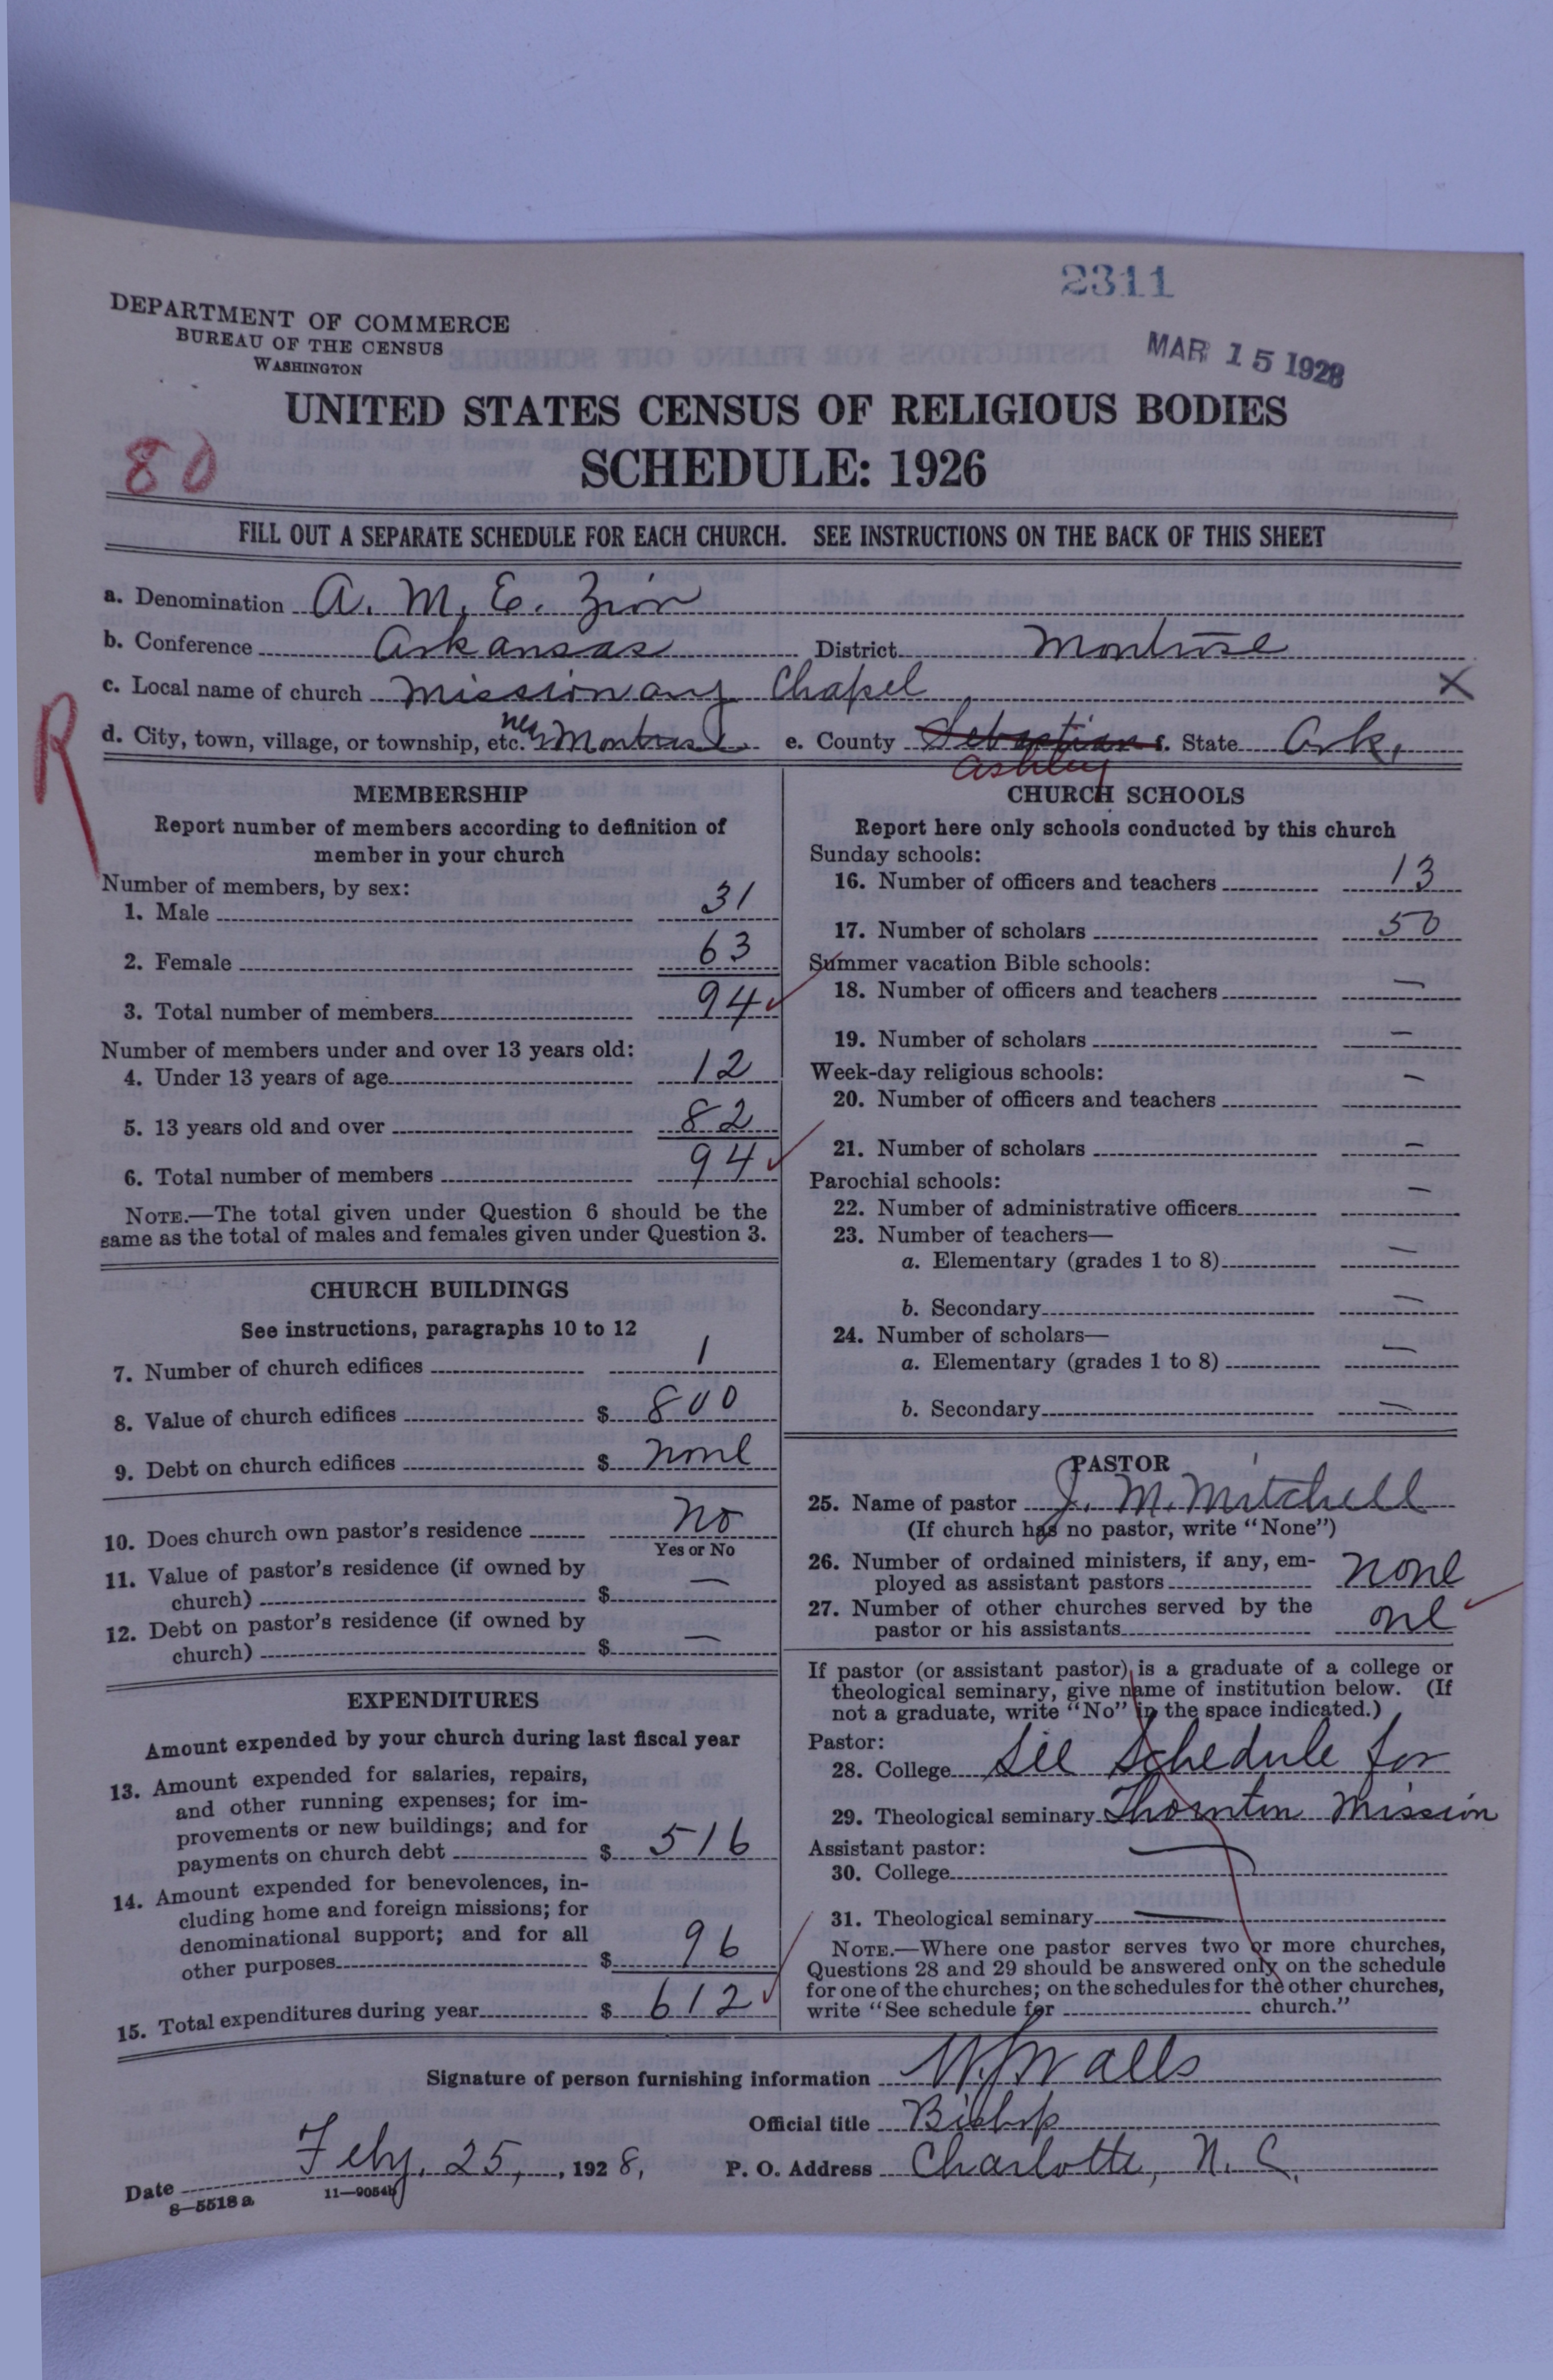 2311
MAR 15 1928
DEPARTMENT OF COMMERCE
BUREAU OF THE CENSUS
WASHINGTON
UNITED STATES CENSUS OF RELIGIOUS BODIES
SCHEDULE: 1926
80
FILL OUT A SEPARATE SCHEDULE FOR EACH CHURCH. SEE INSTRUCTIONS ON THE BACK OF THIS SHEET
a. Denomination A. M. E. Zion
b. Conference Arkansas District Montrose
c. Local name of church Missionary Chapel X
R
d. City, town, village, or township, etc. near Montrose e. County Sebastian f. State Ark.
Ashley
MEMBERSHIP
Report number of members according to definition of
member in your church
Number of members, by sex:
1. Male 31
2. Female 63
3. Total number of members 94
Number of members under and over 13 years old:
4. Under 13 years of age 12
5. 13 years old and over 82
6. Total number of members 94
NOTE.—The total given under Question 6 should be the
same as the total of males and females given under Question 3.
CHURCH BUILDINGS
See instructions, paragraphs 10 to 12
7. Number of church edifices 1
8. Value of church edifices $ 800
9. Debt on church edifices $ none
10. Does church own pastor's residence No
Yes or No
11. Value of pastor's residence (if owned by
church) $ —
12. Debt on pastor's residence (if owned by
church) $ —
EXPENDITURES
Amount expended by your church during last fiscal year
13. Amount expended for salaries, repairs,
and other running expenses; for im-
provements or new buildings; and for
payments on church debt $ 516
14. Amount expended for benevolences, in-
cluding home and foreign missions; for
denominational support; and for all
other purposes $ 96
15. Total expenditures during year $ 612
CHURCH SCHOOLS
Report here only schools conducted by this church
Sunday schools:
16. Number of officers and teachers 13
17. Number of scholars 50
Summer vacation Bible schools:
18. Number of officers and teachers —
19. Number of scholars —
Week-day religious schools:
20. Number of officers and teachers —
21. Number of scholars —
Parochial schools:
22. Number of administrative officers —
23. Number of teachers—
a. Elementary (grades 1 to 8) —
b. Secondary —
24. Number of scholars—
a. Elementary (grades 1 to 8) —
b. Secondary —
PASTOR
25. Name of pastor J. M. Mitchell
(If church has no pastor, write "None")
26. Number of ordained ministers, if any, em-
ployed as assistant pastors none
27. Number of other churches served by the
pastor or his assistants one
If pastor (or assistant pastor) is a graduate of a college or
theological seminary, give name of institution below. (If
not a graduate, write "No" in the space indicated.)
Pastor:
28. College See Schedule for
29. Theological seminary Thornton Mission
Assistant pastor:
30. College —
31. Theological seminary —
NOTE.—Where one pastor serves two or more churches,
Questions 28 and 29 should be answered only on the schedule
for one of the churches; on the schedules for the other churches,
write "See schedule for church."
Signature of person furnishing information W. J. Walls
Official title Bishop
Date Feby. 25, , 1928, P. O. Address Charlotte, N. C.
8—5518 a 11—9054b